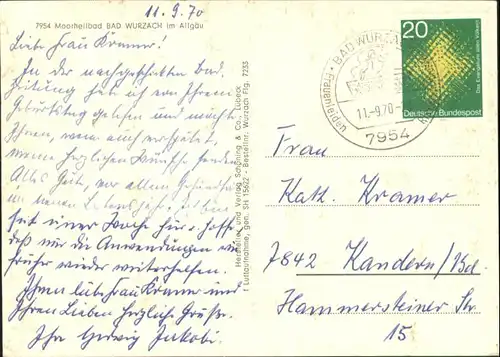 11.9.70
7954 Moorheilbad BAD WURZACH im Allgäu
Liebe Frau Kramer!
In der nachgeschickten Bad.
Zeitung habe ich von Ihrem
Geburtstag gelesen und möchte
Ihnen, wenn auch verspätet,
meine herzlichen Wünsche senden.
Alles Gute, vor allem Gesundheit
im neuen Lebensjahr.
seit einer Woche hier u. hoffe,
daß mir die Anwendungen wie
früher wieder weiterhelfen.
Ihnen liebe Frau Kramer und
Ihren Lieben herzliche Grüße.
Ihr Herwig Jakobi
Hersteller und Verlag Schöning & Co., Lübeck
Luftaufnahme, gen. SH 15662 - Bestellnr. Wurzach Flg. 7255
BAD WURZACH
11.-9.70
7954
20
Das Evangelium allen Völkern
Deutsche Bundespost
Frau
Kath. Kramer
7842 Kandern/Bd.
Hammersteiner Str.
15